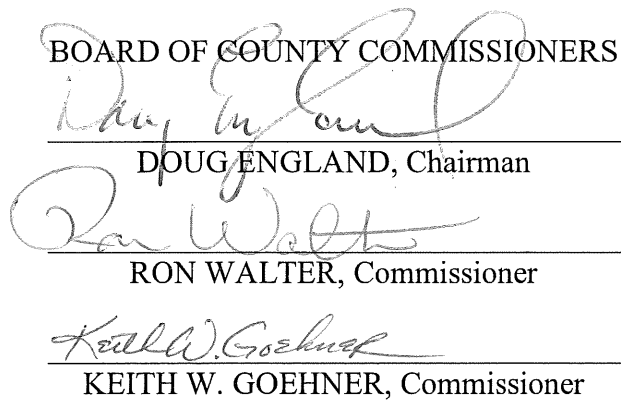 BOARD OF COUNTY COMMISSIONERS
Doug England
DOUG ENGLAND, Chairman
Ron Walter
RON WALTER, Commissioner
Keith W. Goehner
KEITH W. GOEHNER, Commissioner